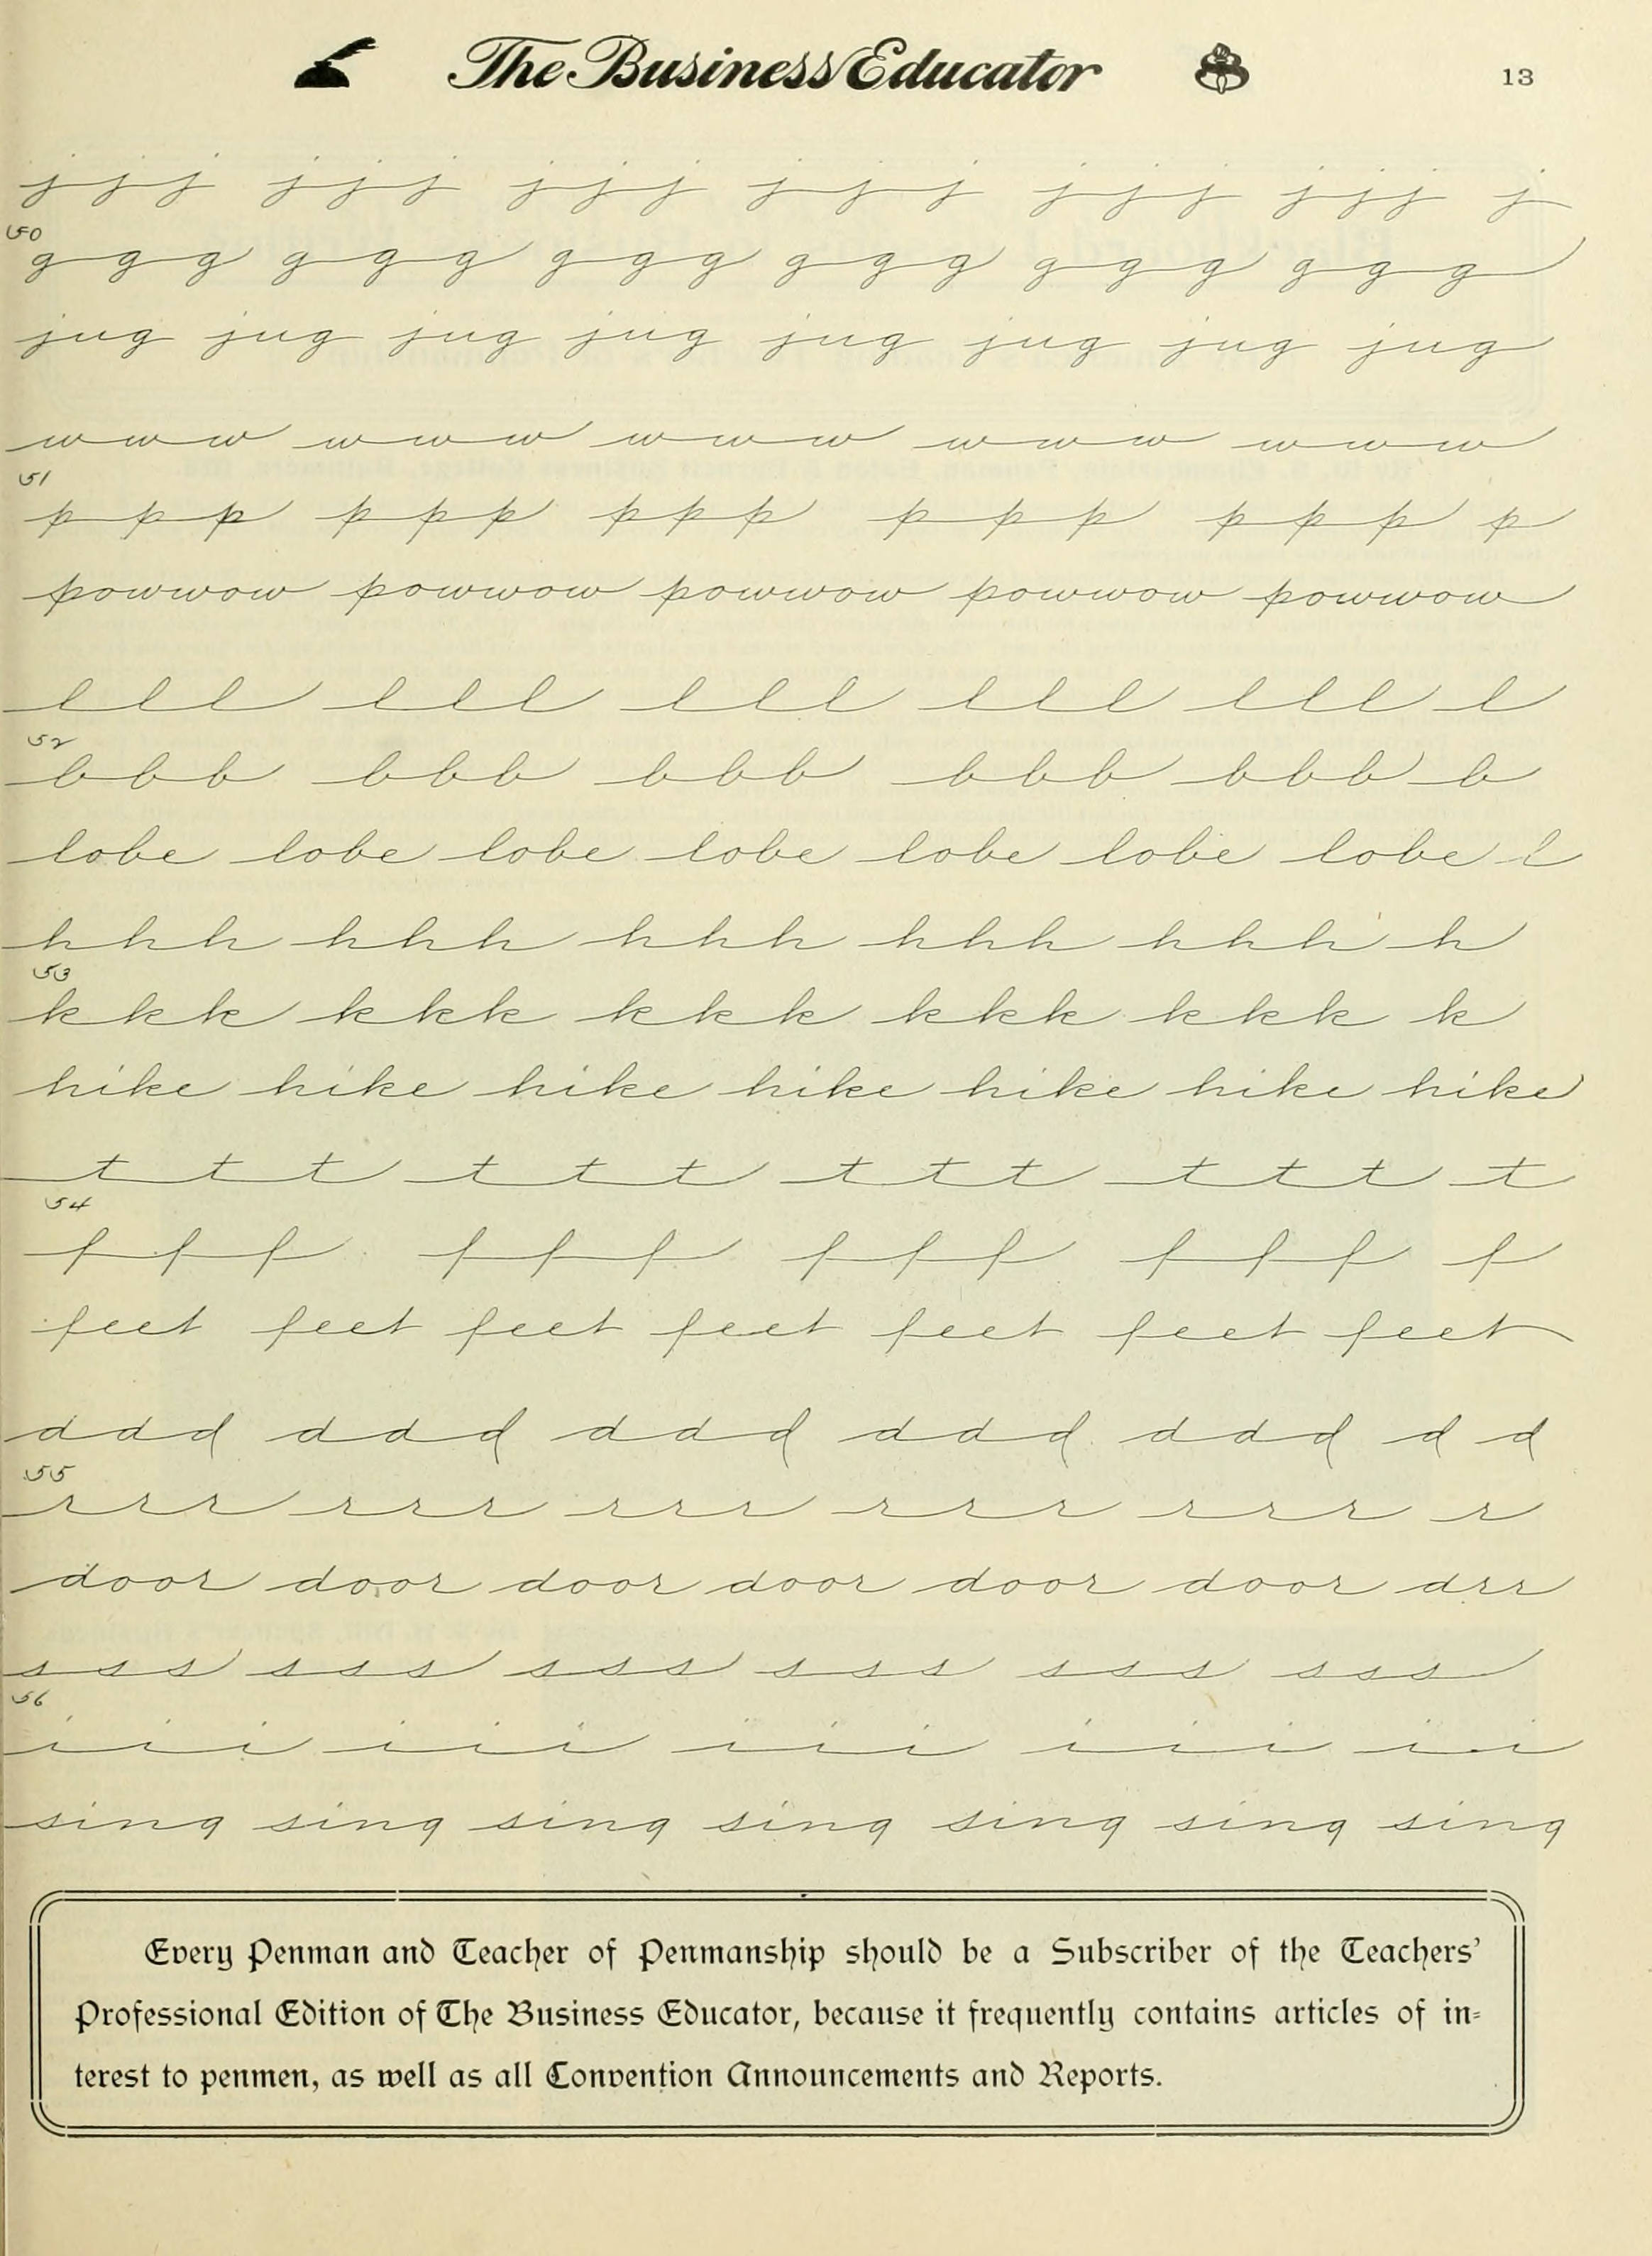 The Business Educator 13
j j j j j j j j j j j j j j j j j j j
50
g g g g g g g g g g g g g g g g g g
jug jug jug jug jug jug jug jug
w w w w w w w w w w w w w w w
51
p p p p p p p p p p p p p p p p
powwow powwow powwow powwow powwow
l l l l l l l l l l l l l l l l
52
b b b b b b b b b b b b b b b b
lobe lobe lobe lobe lobe lobe lobe l
h h h h h h h h h h h h h h h h
53
k k k k k k k k k k k k k k k k
hike hike hike hike hike hike hike
t t t t t t t t t t t t t
54
f f f f f f f f f f f f f
feet feet feet feet feet feet feet
d d d d d d d d d d d d d d d d d
55
r r r r r r r r r r r r r r r r
door door door door door door drr
s s s s s s s s s s s s s s s s s s
56
i i i i i i i i i i i i i i
sing sing sing sing sing sing sing
Every Penman and Teacher of Penmanship should be a Subscriber of the Teachers'
Professional Edition of The Business Educator, because it frequently contains articles of in-
terest to penmen, as well as all Convention Announcements and Reports.